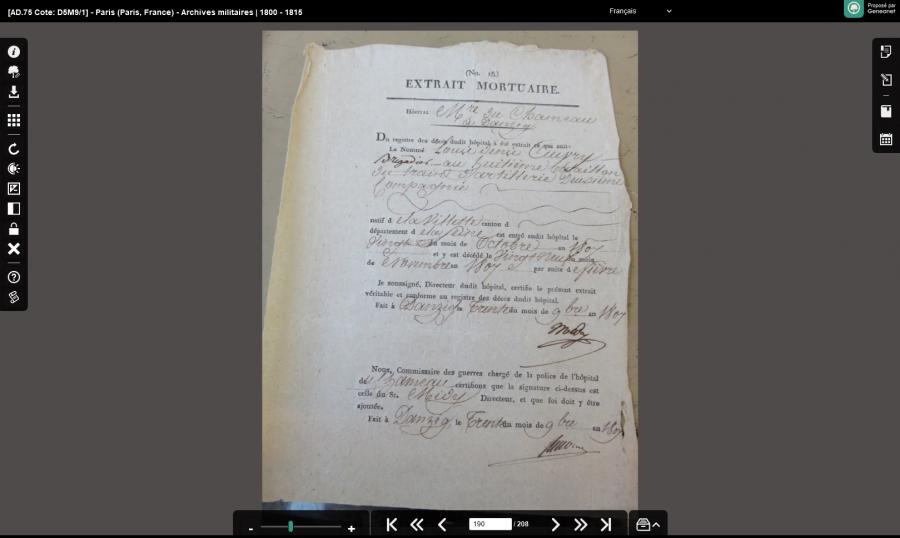 [AD.75 Cote: D5M9/1] - Paris (Paris, France) - Archives militaires | 1800 - 1815
Français
Proposé par
Geneanet
(No. 18.)
EXTRAIT MORTUAIRE.
Hôpital Mre du Chameau
à Danzig
Du registre des décès dudit hôpital à été extrait ce qui suit:
Le Nommé Louis Denis Cuvry
Brigadier au huitième Bataillon
du train d'artillerie Deuxième
Compagnie
natif d e la Villette canton d
département d e la Seine est entré audit hôpital le
Vingt du mois de Octobre an 1807
et y est décédé le Vingt Neuf du mois
de Novembre an 1807 par suite d e fièvre
Je soussigné, Directeur dudit hôpital, certifie le présent extrait
véritable et conforme au registre des décès dudit hôpital.
Fait à Danzig le Trente du mois de 9bre an 1807
Nous, Commissaire des guerres chargé de la police de l'hôpital
du Chameau certifions que la signature ci-dessus est
celle du Sr. Directeur, et que foi doit y être
ajoutée.
Fait à Danzig le Trente du mois de 9bre an 1807
190 / 208